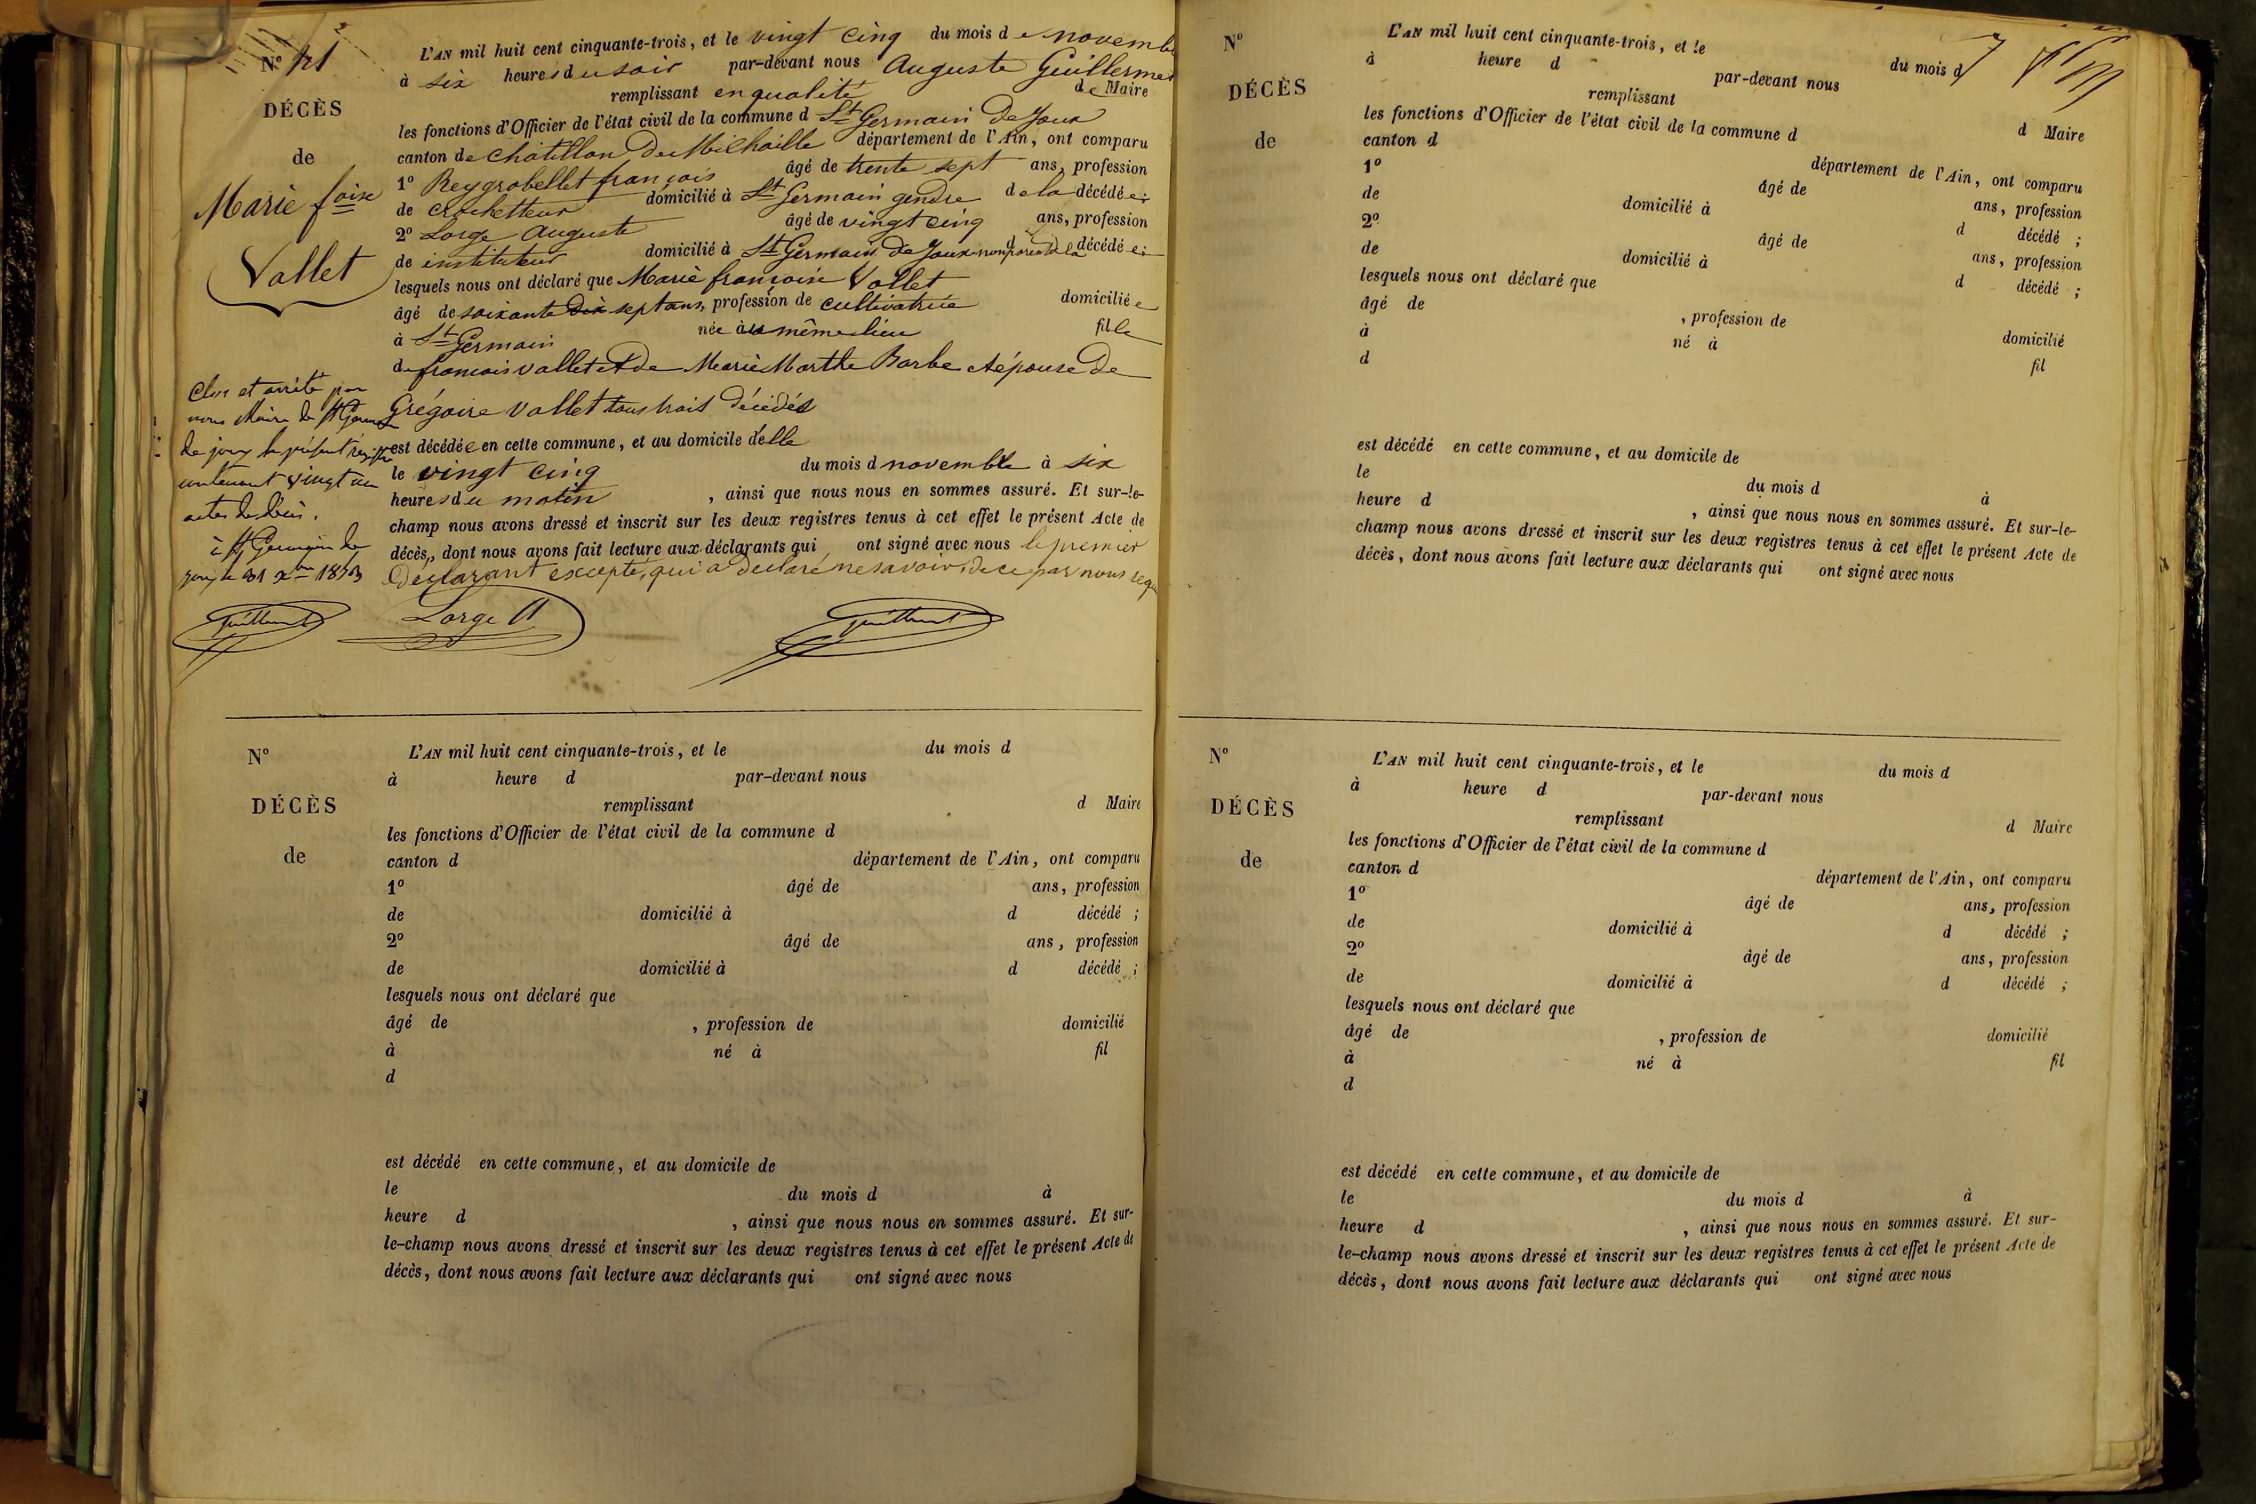 N° 21
DÉCÈS
de
Marie foise
Vallet
L'AN mil huit cent cinquante-trois, et le vingt cinq du mois de novembre
à six heures du soir par-devant nous Auguste Guillermet
remplissant en qualité de Maire
les fonctions d'Officier de l'état civil de la commune d St Germain De Joux
canton de Châtillon De Michaille département de l'Ain, ont comparu
1° Reygrobellet françois âgé de trente sept ans, profession
de crochetteur domicilié à St Germain gendre de la décédée;
2° Lorge Auguste âgé de vingt cinq ans, profession
de instituteur domicilié à St Germain de Joux non parent d la décédée;
lesquels nous ont déclaré que Marie françoise Vallet
âgé de soixante Dix sept ans, profession de cultivatrice domiciliée
à St Germain née au même lieu fille
de francois vallet et de Marie Marthe Barbe et épouse De
Grégoire Vallet tous trois décédés
est décédée en cette commune, et au domicile d'elle
le vingt cinq du mois d novembre à six
heures du matin, ainsi que nous nous en sommes assuré. Et sur-le-
champ nous avons dressé et inscrit sur les deux registres tenus à cet effet le présent Acte de
décès, dont nous avons fait lecture aux déclarants qui ont signé avec nous le premier
Déclarant excepté, qui a déclaré ne savoir, de ce par nous requis
Lorge A
Guillermet
Clos et arrêté par
nous Maire de St Germain
de joux le présent régistre
contenant vingt un
actes de décès.
à St Germain de
joux le 31 Xbre 1853
Guillermet
N°
DÉCÈS
de
L'AN mil huit cent cinquante-trois, et le du mois d
à heure d par-devant nous
remplissant d Maire
les fonctions d'Officier de l'état civil de la commune d
canton d département de l'Ain, ont comparu
1° âgé de ans, profession
de domicilié à d décédé ;
2° âgé de ans, profession
de domicilié à d décédé ;
lesquels nous ont déclaré que
âgé de , profession de domicilié
à né à fil
d
est décédé en cette commune, et au domicile de
le du mois d à
heure d , ainsi que nous nous en sommes assuré. Et sur-
le-champ nous avons dressé et inscrit sur les deux registres tenus à cet effet le présent Acte de
décès, dont nous avons fait lecture aux déclarants qui ont signé avec nous
N°
DÉCÈS
de
L'AN mil huit cent cinquante-trois, et le du mois d
à heure d par-devant nous
remplissant d Maire
les fonctions d'Officier de l'état civil de la commune d
canton d département de l'Ain, ont comparu
1° âgé de ans, profession
de domicilié à d décédé ;
2° âgé de ans, profession
de domicilié à d décédé ;
lesquels nous ont déclaré que
âgé de , profession de domicilié
à né à fil
d
est décédé en cette commune, et au domicile de
le du mois d à
heure d , ainsi que nous nous en sommes assuré. Et sur-le-
champ nous avons dressé et inscrit sur les deux registres tenus à cet effet le présent Acte de
décès, dont nous avons fait lecture aux déclarants qui ont signé avec nous
N°
DÉCÈS
de
L'AN mil huit cent cinquante-trois, et le du mois d
à heure d par-devant nous
remplissant d Maire
les fonctions d'Officier de l'état civil de la commune d
canton d département de l'Ain, ont comparu
1° âgé de ans, profession
de domicilié à d décédé ;
2° âgé de ans, profession
de domicilié à d décédé ;
lesquels nous ont déclaré que
âgé de , profession de domicilié
à né à fil
d
est décédé en cette commune, et au domicile de
le du mois d à
heure d , ainsi que nous nous en sommes assuré. Et sur-
le-champ nous avons dressé et inscrit sur les deux registres tenus à cet effet le présent Acte de
décès, dont nous avons fait lecture aux déclarants qui ont signé avec nous